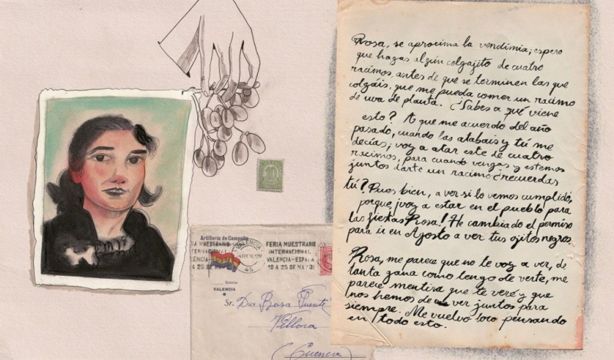 Rosa, se aproxima la vendimia, espero
que hagas algún colgajito de cuatro
racimos antes de que se terminen las que
colgáis, que me pueda comer un racimo
de uva de planta. ¿Sabes a qué viene
esto? A que me acuerdo del año
pasado, cuando las atabais y tú me
decías; voy a atar este de cuatro
racimos, para cuando vengas y estemos
juntos darte un racimo ¿recuerdas
tú? Pues bien, a ver si lo vemos cumplido,
porque ¡voy a estar en el pueblo para
las fiestas Rosa! He cambiado el permiso
para ir en Agosto a ver tus ojitos negros.
Rosa, me parece que no te voy a ver, de
tanta gana como tengo de verte, me
parece mentira que te veré y que
nos hemos de ver juntos para
siempre. Me vuelvo loco pensando
en todo esto.
Artillería de Campaña
VALENCIA
FERIA MUESTRARIO
INTERNACIONAL
VALENCIA-ESPAÑA
10 A 25 DE MAYO
Sr. Dª Rosa Puente
Villora
(Cuenca)